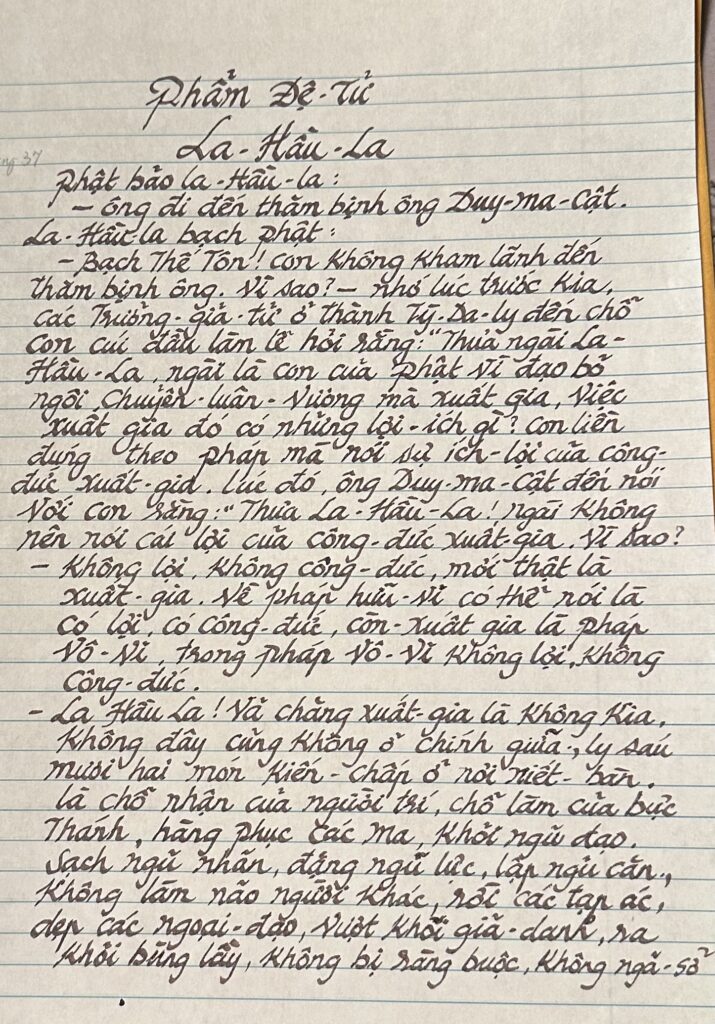 Phẩm Đệ-Tử
La-Hầu-La
ng 37
Phật bảo la-Hầu-la:
– ông đi đến thăm bịnh ông Duy-ma-Cật.
La-Hầu-la bạch phật:
– Bạch Thế Tôn! con không kham lãnh đến
thăm bịnh ông. Vì sao? – nhớ lúc trước kia,
các Trưởng-giả-tử ở thành Tỳ-Da-ly đến chỗ
con cúi đầu làm lễ hỏi rằng: "Thưa ngài La-
Hầu-La, ngài là con của phật vì đạo bỏ
ngôi chuyển-luân-Vương mà xuất gia, việc
xuất gia đó có những lợi-ích gì? con liền
đúng theo pháp mà nói sự ích-lợi của công-
đức xuất-gia. lúc đó, ông Duy-ma-Cật đến nói
với con rằng: "Thưa La-Hầu-La! ngài không
nên nói cái lợi của công-đức xuất-gia. Vì sao?
– không lợi, không công-đức, mới thật là
xuất-gia. Về pháp hữu-vi có thể nói là
có lợi, có công-đức, còn-xuất gia là pháp
Vô-Vi, trong pháp Vô-Vi không lợi, không
công-đức.
– La Hầu La! Vả chăng xuất-gia là không kia,
không đây cũng không ở chính giữa, ly sáu
mươi hai món kiến-chấp ở nơi niết-bàn,
là chỗ nhận của người trí, chỗ làm của bực
Thánh, hàng phục các ma, khỏi ngũ đạo.
sạch ngũ nhãn, đặng ngũ lực, lập ngũ căn,
không làm não người khác, rời các tạp ác,
dẹp các ngoại-đạo, vượt khỏi giả-danh, ra
khỏi bùng lầy, không bị ràng buộc, không ngã-sở